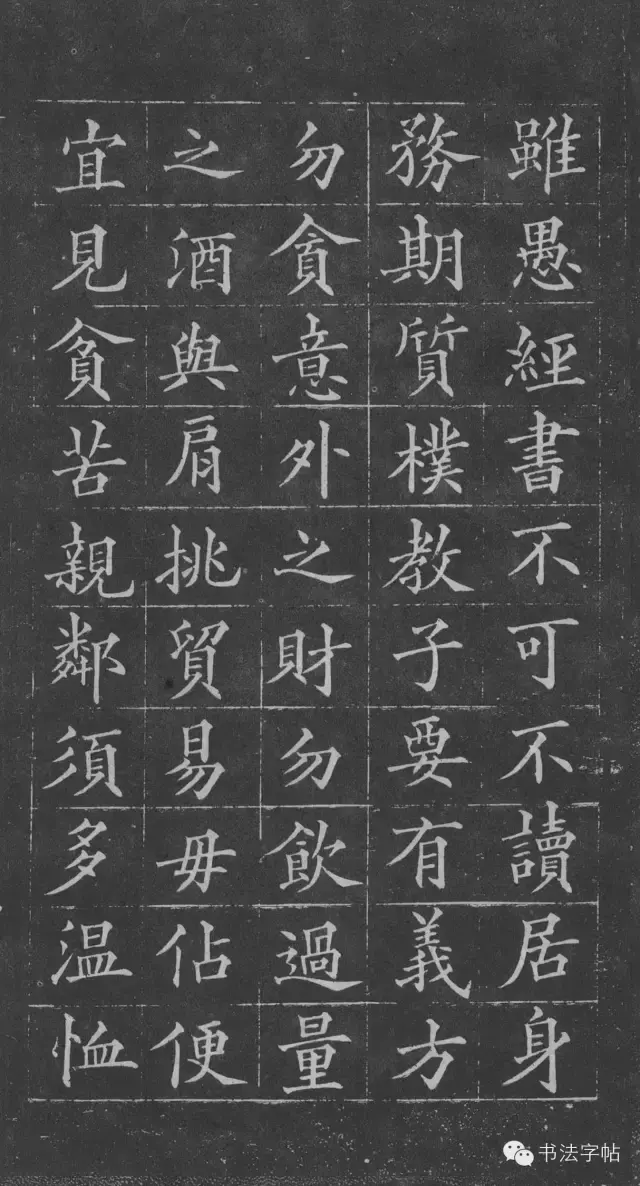 雖愚經書不可不讀居身
務期質樸教子要有義方
勿貪意外之財勿飲過量
之酒與肩挑貿易毋佔便
宜見貧苦親鄰須多温恤
书法字帖